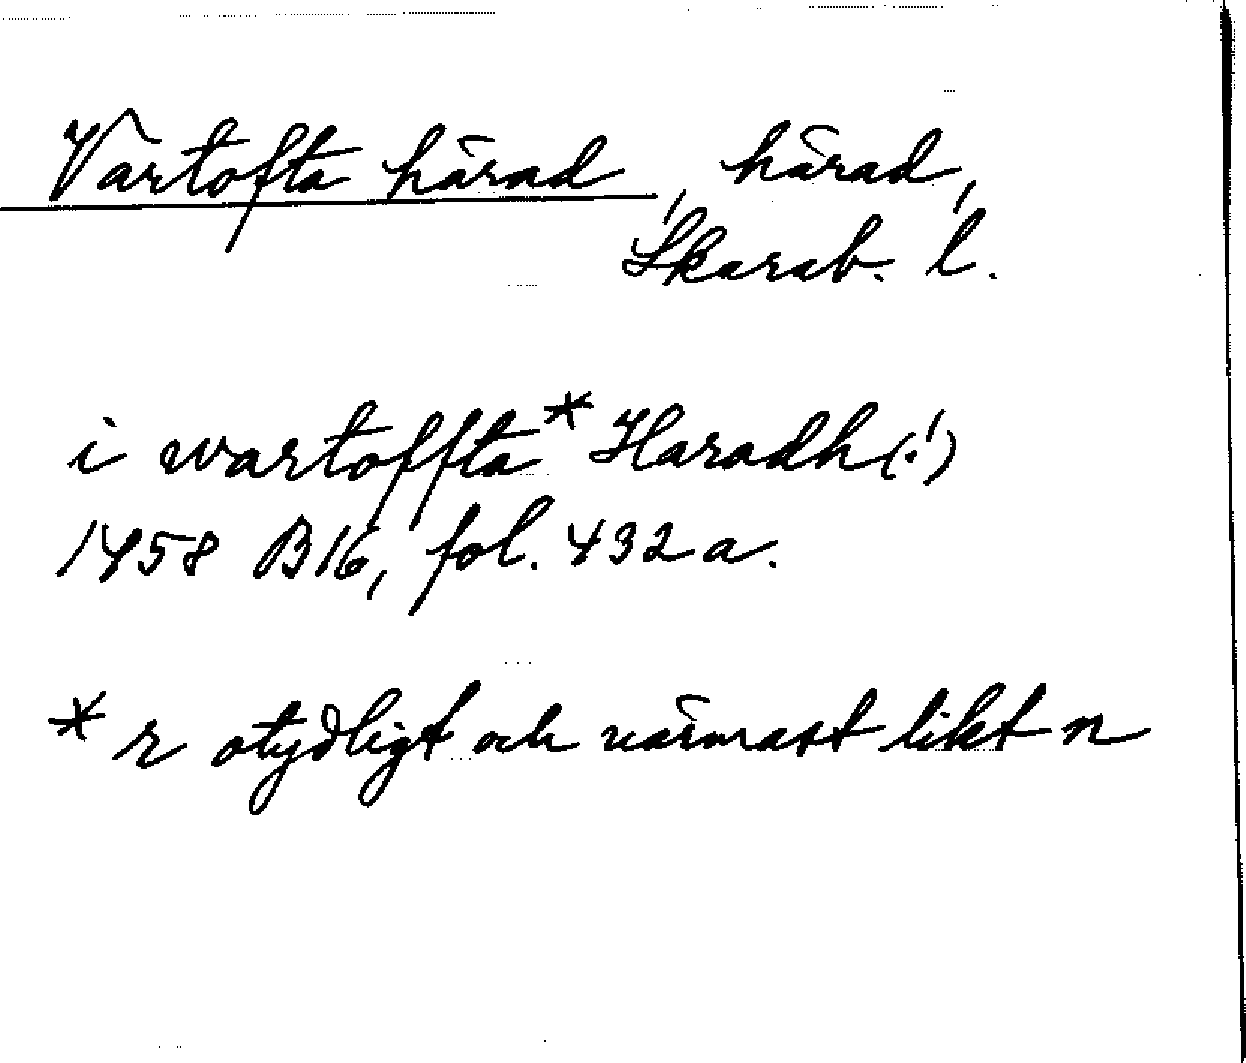 Vartofta härad, härad,
Skarab. l.
i wartoffta* Haradh(!)
1458 B16, fol. 432a.
* r otydligt och närmast likt n